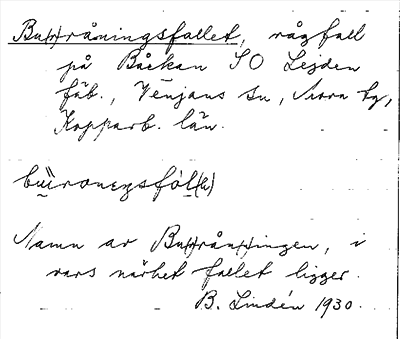 Bu(r)råningsfallet, vågfall
på Båckan SO Lejden
fäb., Venjans sn, Mora tg,
Kopparb. län.
bu̲ironeŋsfól̲(ə)
Namn av Bu(r)rån(s)ingen, i
vars närhet fallet ligger.
B. Lindén 1930.